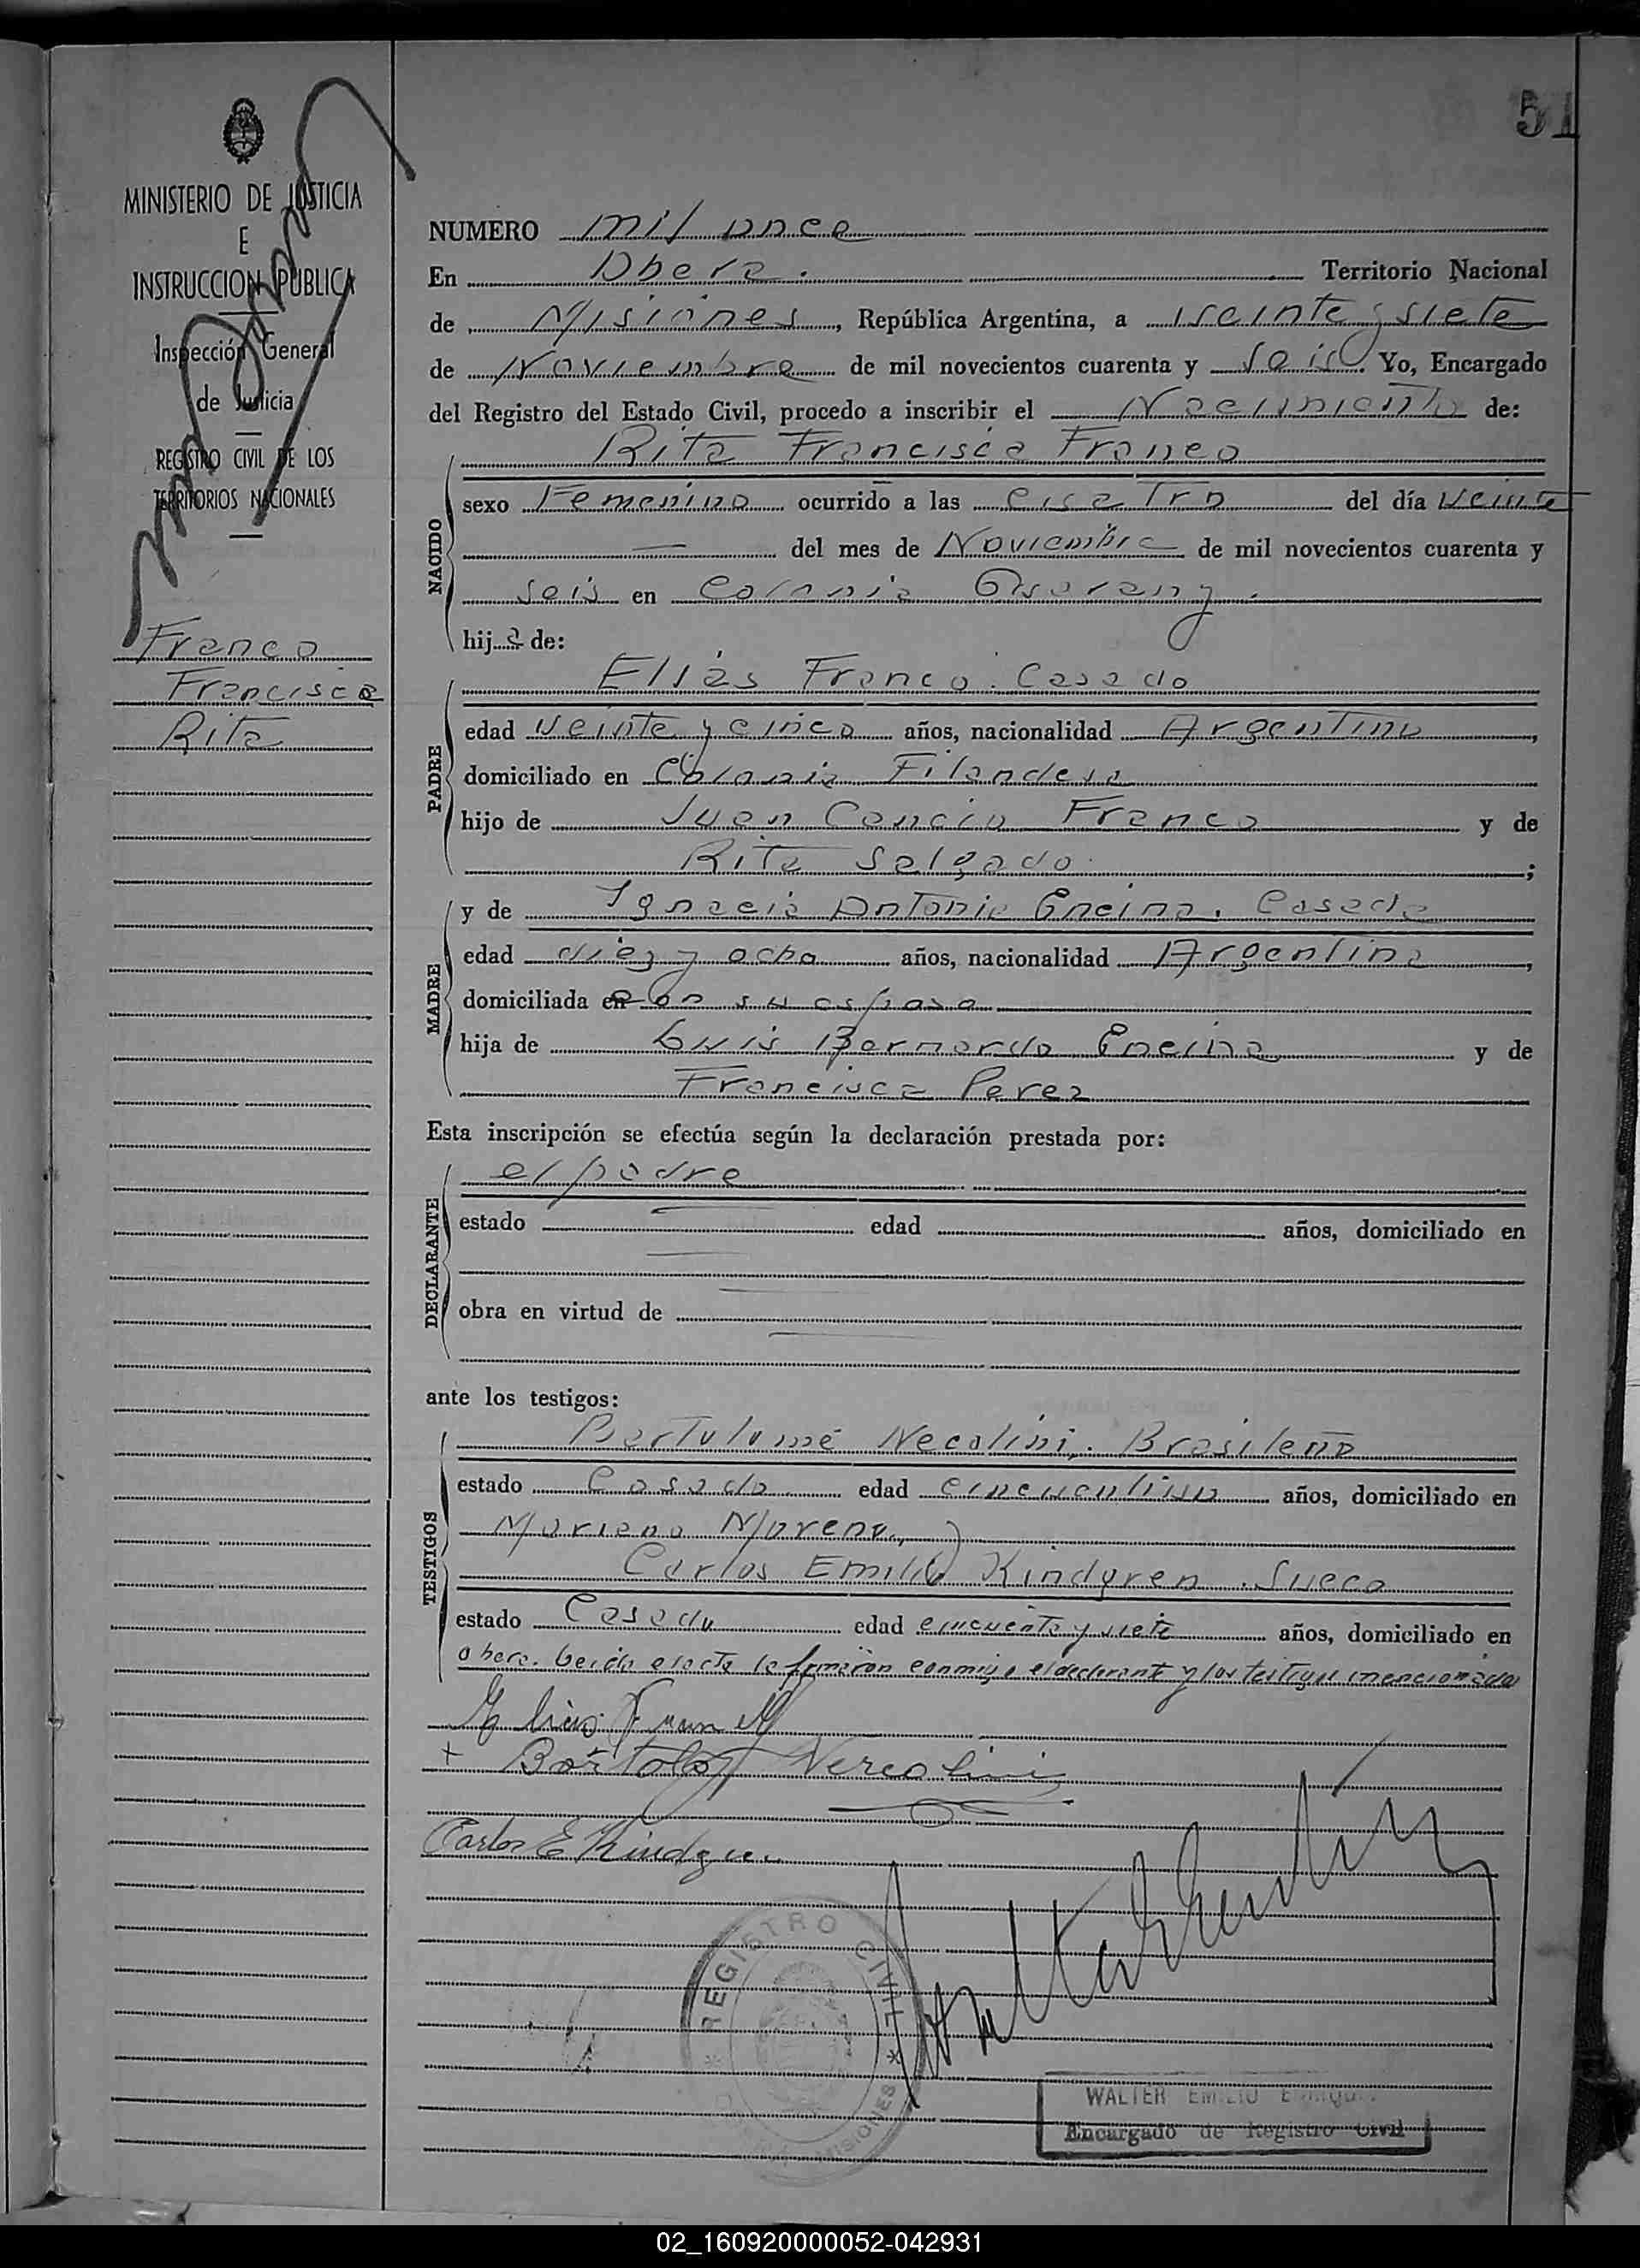 51
MINISTERIO DE JUSTICIA
E
INSTRUCCION PUBLICA
Inspección General
de Justicia
REGISTRO CIVIL DE LOS
TERRITORIOS NACIONALES
Franco
Francisca
Rita
NUMERO mil once
En Obera. Territorio Nacional
de Misiones, República Argentina, a veinte y siete
de Noviembre de mil novecientos cuarenta y seis. Yo, Encargado
del Registro del Estado Civil, procedo a inscribir el Nacimiento de:
Rita Francisca Franco
NACIDO
sexo Femenino ocurrido a las cuatro del día veinte
— del mes de Noviembre de mil novecientos cuarenta y
seis en Colonia Guarany.
hija de:
Elias Franco. Casado
PADRE
edad veinte y cinco años, nacionalidad Argentino,
domiciliado en Colonia Filandesa
hijo de Juan Cancio Franco y de
Rita Salgado;
y de Ignacia Antonia Encina. Casada
MADRE
edad diez y ocho años, nacionalidad Argentina,
domiciliada en con su esposo
hija de Luis Bernardo Encina y de
Francisca Perez
Esta inscripción se efectúa según la declaración prestada por:
el padre
DECLARANTE
estado edad años, domiciliado en
obra en virtud de
ante los testigos:
Bartulumé Necolini. Brasileño
TESTIGOS
estado Casado edad años, domiciliado en
Mariano Moreno, y
Carlos Emilio Kindgren. Sueco
estado Casado edad cincuenta y siete años, domiciliado en
Obera. Leida el acta la firmaron conmigo el declarante y los testigos mencionados
Elias Franco
+ Bartolo Vercolini
Carlos E Kindgren
REGISTRO CIVIL
MISIONES
WALTER EMILIO
Encargado de Registro Civil
02_160920000052-042931